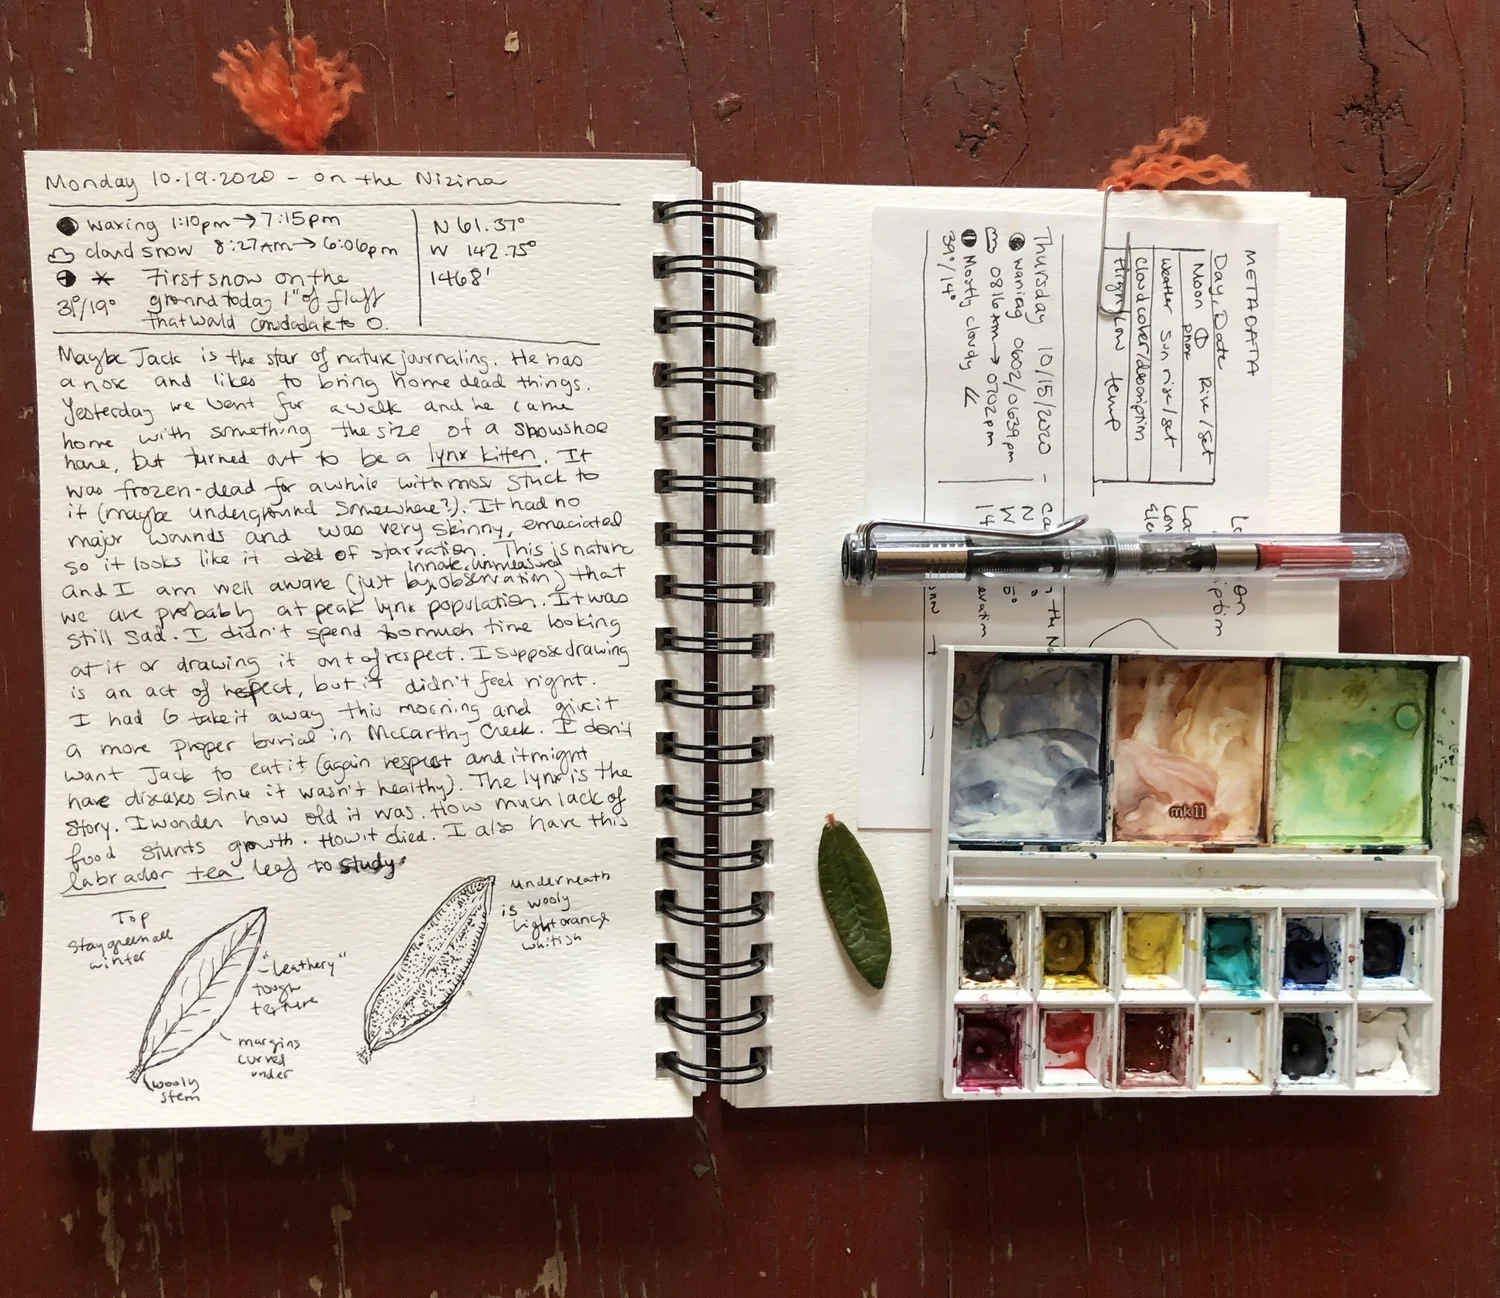 Monday 10.19.2020 - on the Nizina
waxing 1:10pm → 7:15pm
cloud snow 8:27AM → 6:06pm
First snow on the
31°/19° ground today 1" of fluff
that would to 0.
N 61.37°
W 142.75°
1468'
Maybe Jack is the star of nature journaling. He has
a nose and likes to bring home dead things.
Yesterday we went for a walk and he came
home with something the size of a snowshoe
hare, but turned out to be a lynx kitten. It
was frozen-dead for awhile with moss stuck to
it (maybe underground somewhere?). It had no
major wounds and was very skinny, emaciated
so it looks like it died of starvation. This is nature
innate, unmeasured
and I am well aware (just by observation) that
we are probably at peak lynx population. It was
still sad. I didn't spend too much time looking
at it or drawing it out of respect. I suppose drawing
is an act of respect, but it didn't feel right.
I had to take it away this morning and give it
a more proper burial in McCarthy Creek. I don't
want Jack to eat it (again respect and it might
have diseases since it wasn't healthy). The lynx is the
story. I wonder how old it was. How much lack of
food stunts growth. How it died. I also have this
labrador tea leaf to study.
Top
stay green all
winter
"leathery"
tough
texture
margins
curved
under
wooly
stem
underneath
is wooly
light orange
whitish
METADATA
Day, Date
Moon phase Rise/set
weather sun rise/set
cloud cover/description
High/Low temp
Thursday 10/15/2020 -
waning 0602/0639pm
0816 Am → 0702pm
Mostly cloudy
39°/14°
N
W
14
mk11